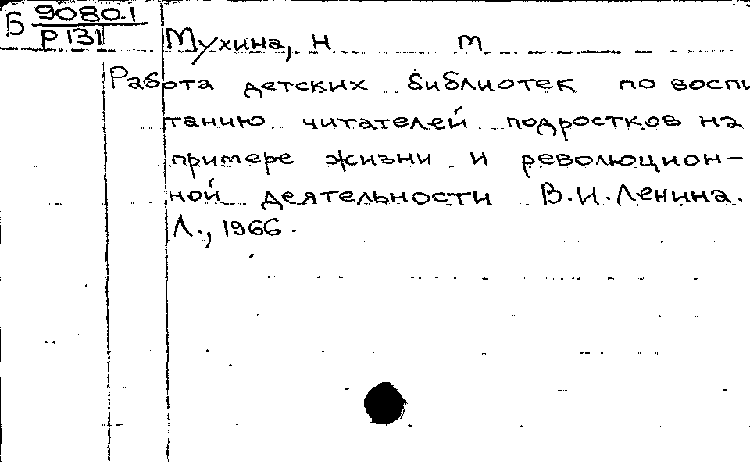 Б 9080.1
Р 131
Мухина, Н М
Работа детских библиотек по воспи
танию читателей подростков на
примере жизни и революцион-
ной деятельности В.И.Ленина.
Л., 1966.